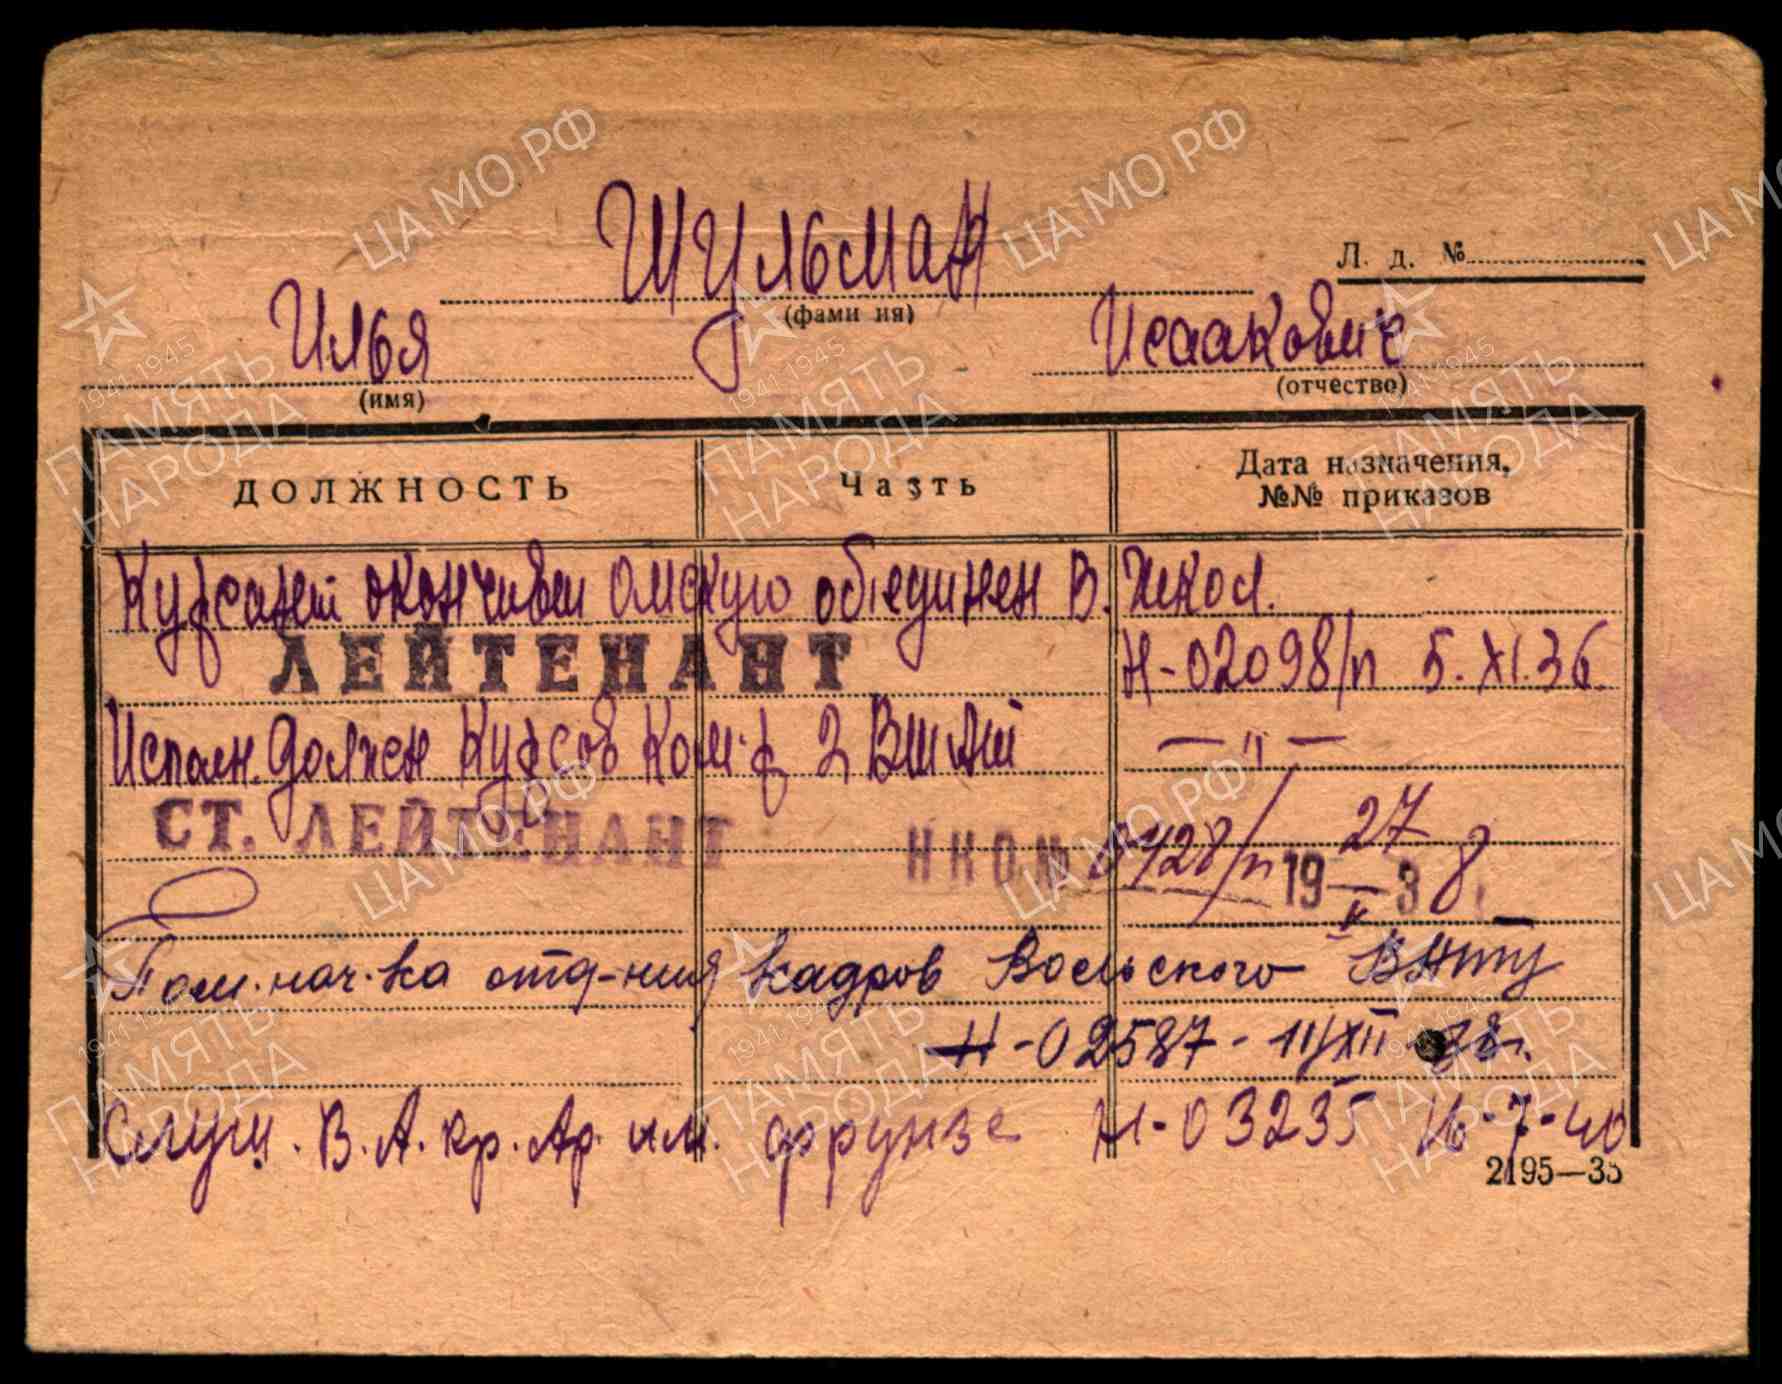 Шульман
Л. д. №
(фами ия)
Илья
Исаакович
(имя)
(отчество)
ДОЛЖНОСТЬ
Часть
Дата назначения,
№№ приказов
Курсант окончивш Омскую объединен В. школ.
ЛЕЙТЕНАНТ
Н-02098/п 5.XI.36.
Исполн. должен Курсов Ком-р 2
— " —
СТ. ЛЕЙТЕНАНТ
НКО № 0428/п 27 19—38
II
Пом. нач-ка отд-ния кадров Вольского
Н-02587 - 11/XII 38г.
Слущ. В. А. кр. Ар. им. Фрунзе Н-03235 16-7-40
2195—35
ЦА МО РФ
1941-1945
ПАМЯТЬ
НАРОДА